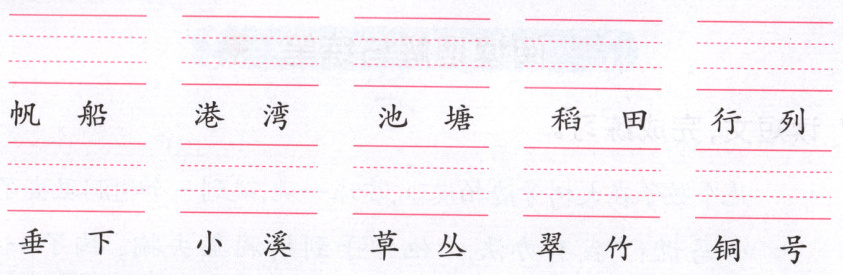 帆 船 港 湾 池 塘 稻 田 行 列
垂 下 小 溪 草 丛 翠 竹 铜 号